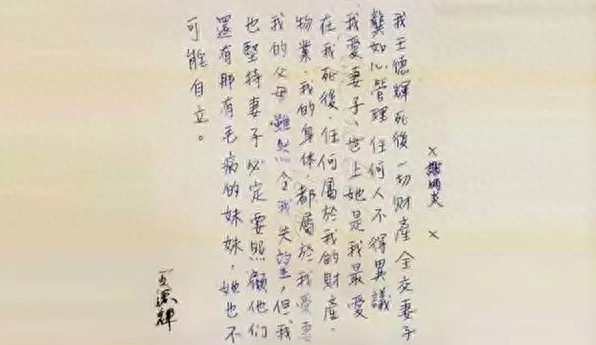 我王德輝死後一切財產全交妻子
龔如心管理任何人不得異議
我愛妻子、世上她是我最愛
在我死後.任何屬於我的財產.
物業.我的身体.都屬於我愛妻
我的父母雖然令我失望,但我
也堅持妻子必定要照顧他們
還有那有毛病的妹妹,她也不
可能自立。
王德輝